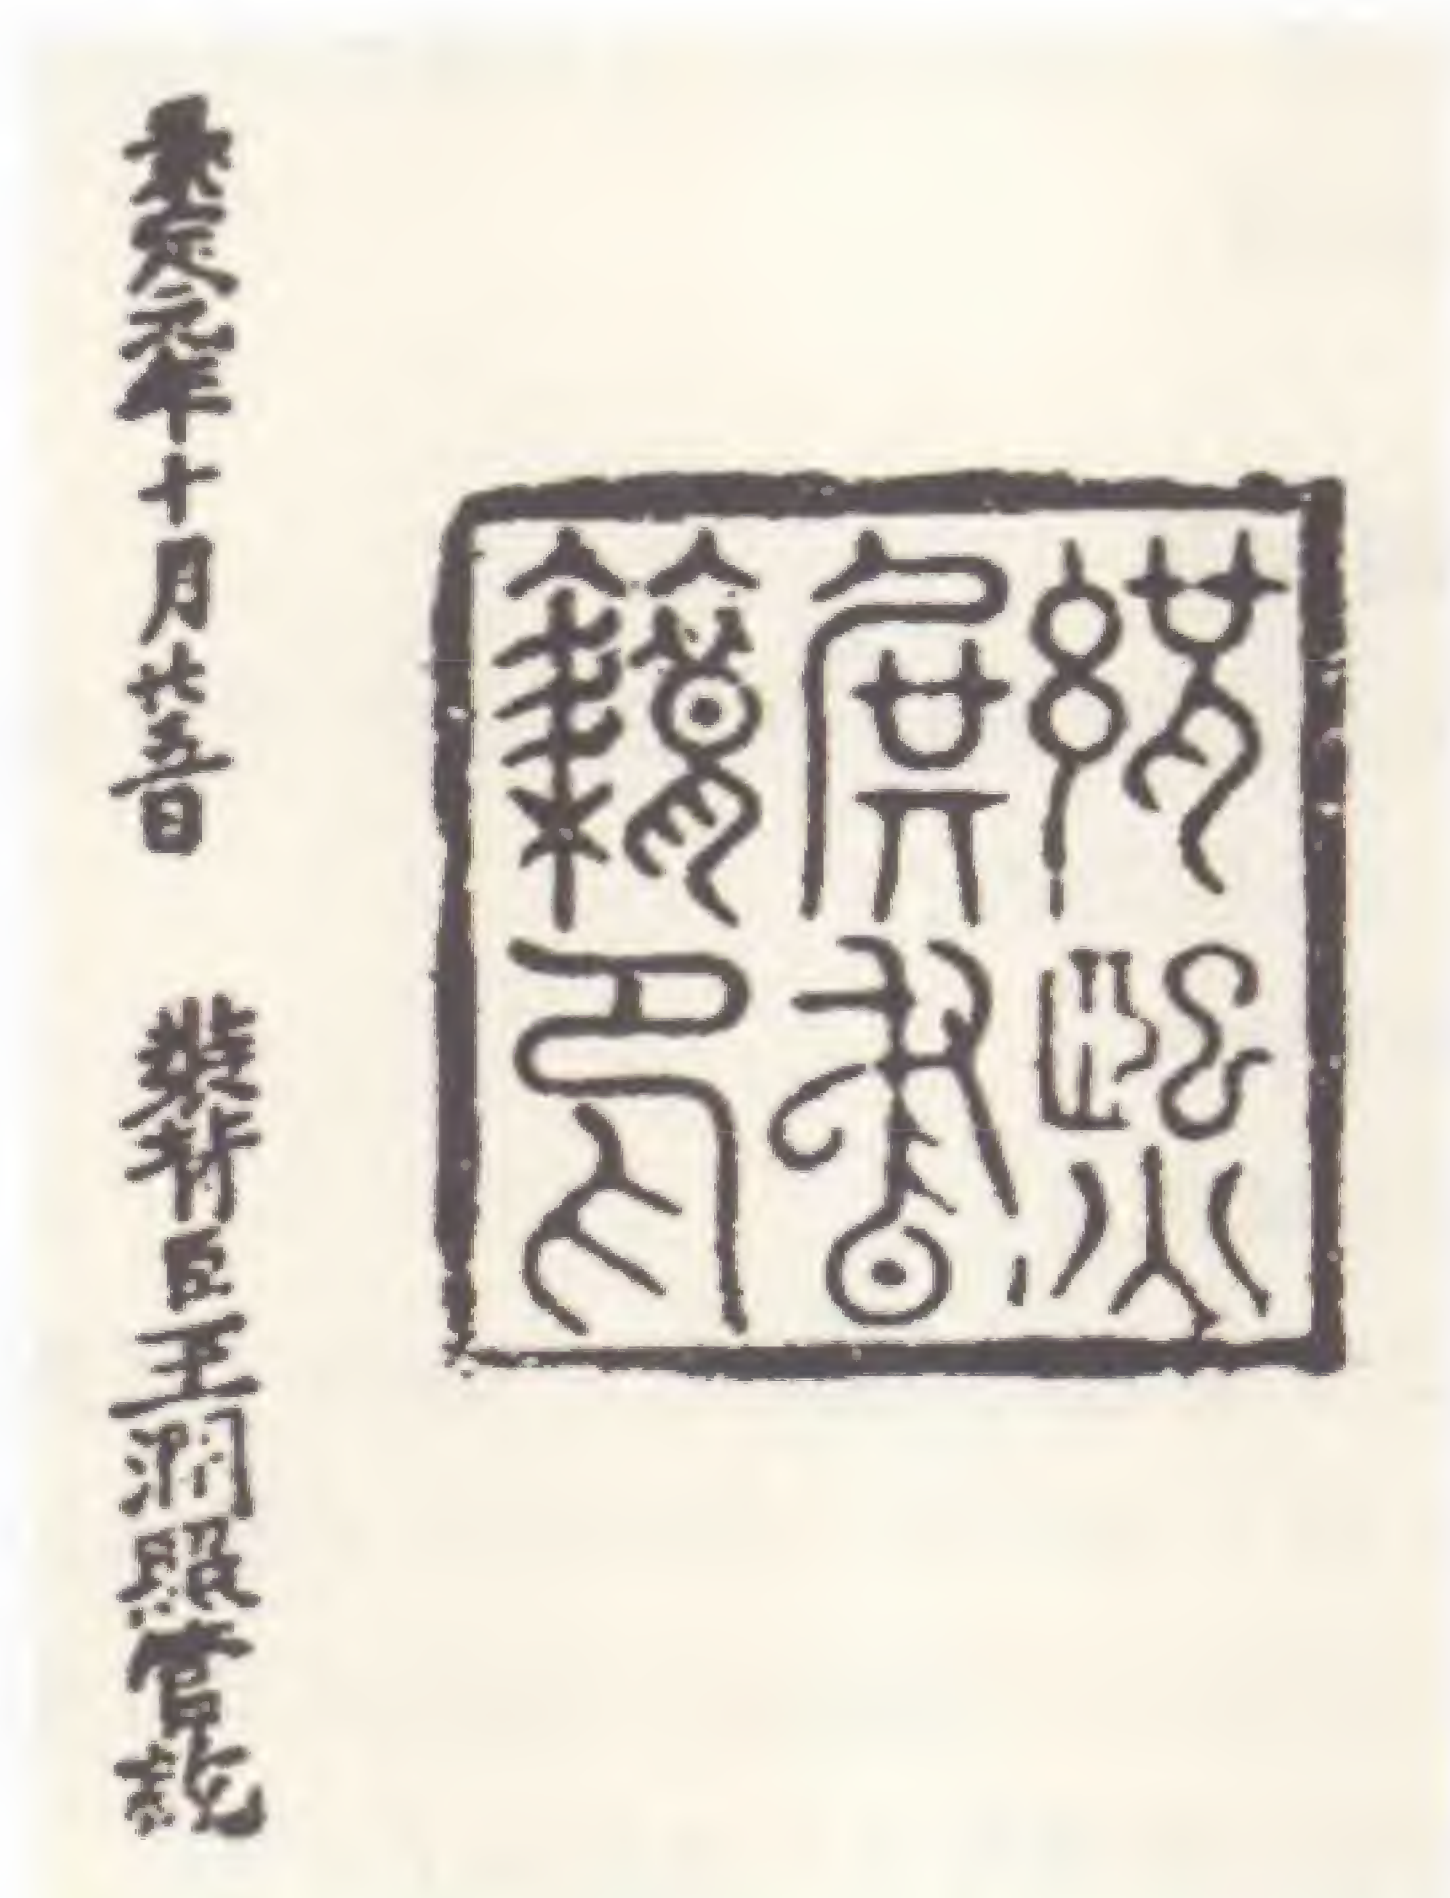 緝熙
殿書
籍印
景定元年十月廿五日 裝背臣王潤照管訖